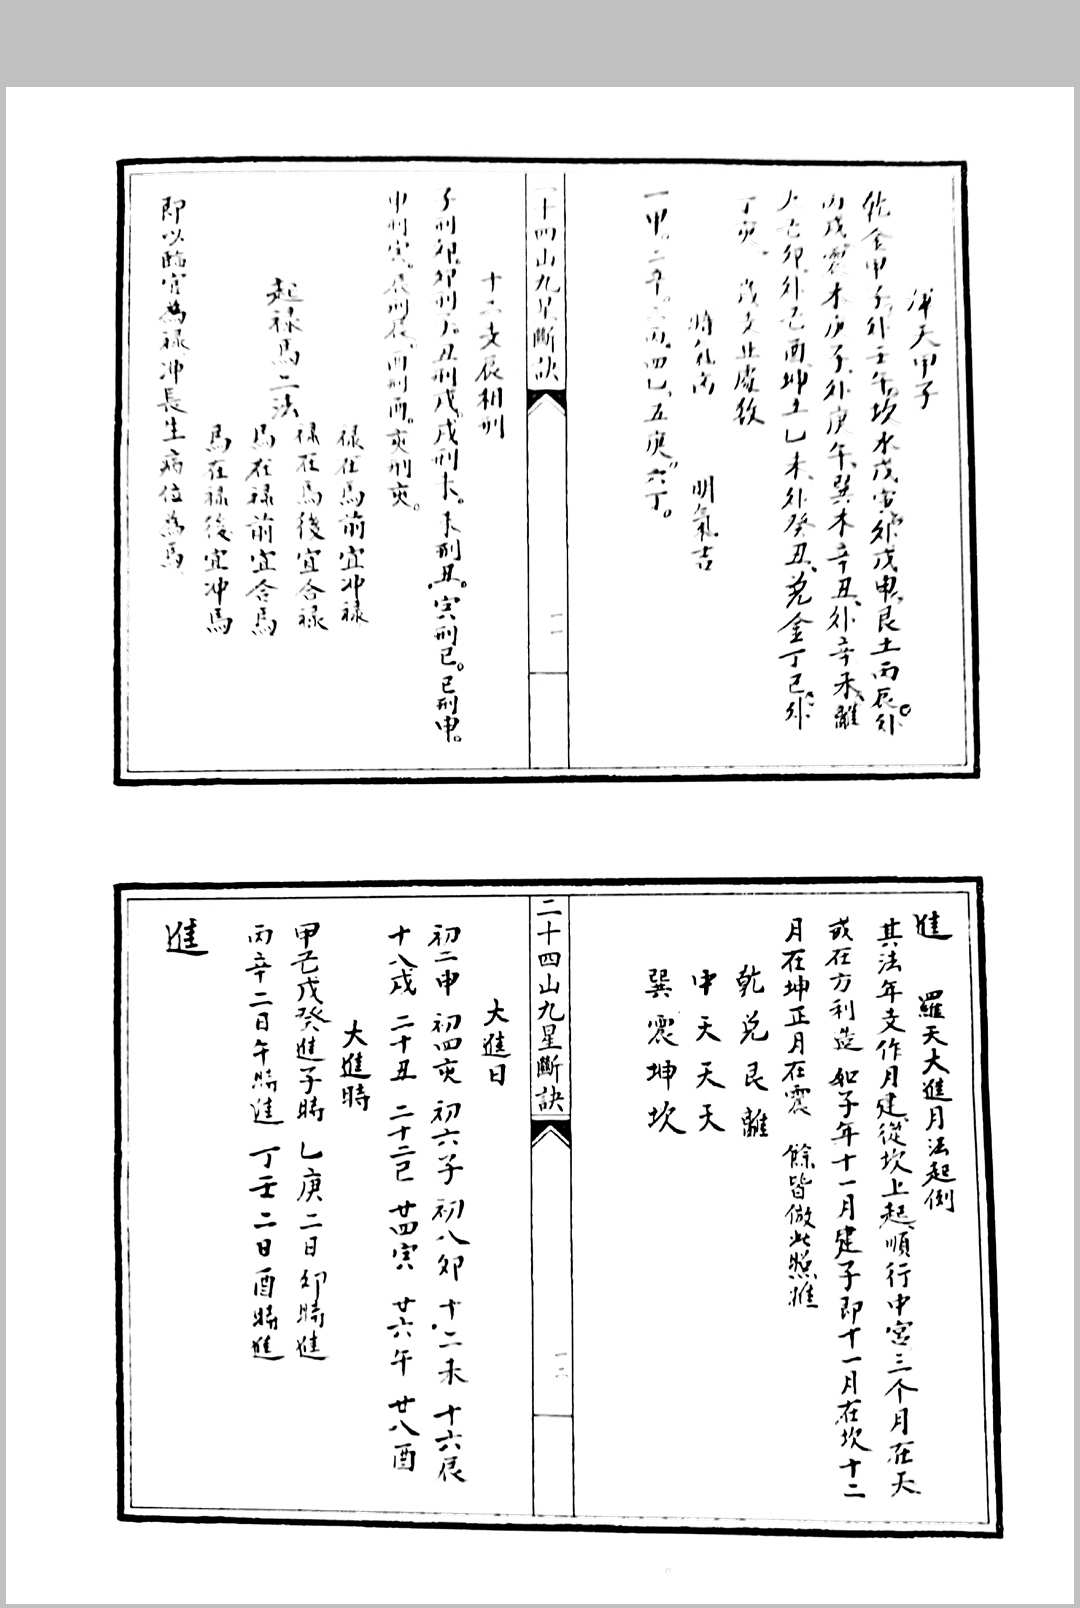 渾天甲子
乾金甲子外壬午坎水戊寅外戊申艮土丙辰外
丙戌震木庚子外庚午巽木辛丑外辛未離
火己卯外己酉坤土乙未外癸丑兌金丁巳外
丁亥 歲支止處教
將氣丙 明氣吉
一甲。二辛。三丙。四乙。五庚。六丁。
二十四山九星斷訣
十一
十二支辰相刑
子刑卯。卯刑子。丑刑戌。戌刑未。未刑丑。寅刑巳。巳刑申。
申刑寅。辰刑辰。酉刑酉。亥刑亥。
祿在馬前宜冲祿
祿在馬後宜合祿
起祿馬二法
馬在祿前宜合馬
馬在祿後宜冲馬
即以臨官為祿冲長生病位為馬
進 羅天大進月法起例
其法年支作月建從坎上起順行中宮三个月在天
或在方利造 如子年十一月建子即十一月在坎十二
月在坤正月在震 餘皆倣此照推
乾兌艮離
中天天天
巽震坤坎
二十四山九星斷訣
十二
大進日
初二申 初四亥 初六子 初八卯 十二未 十六辰
十八戌 二十丑 二十二巳 廿四寅 廿六午 廿八酉
大進時
甲己戊癸進子時 乙庚二日卯時進
丙辛二日午時進 丁壬二日酉時進
進